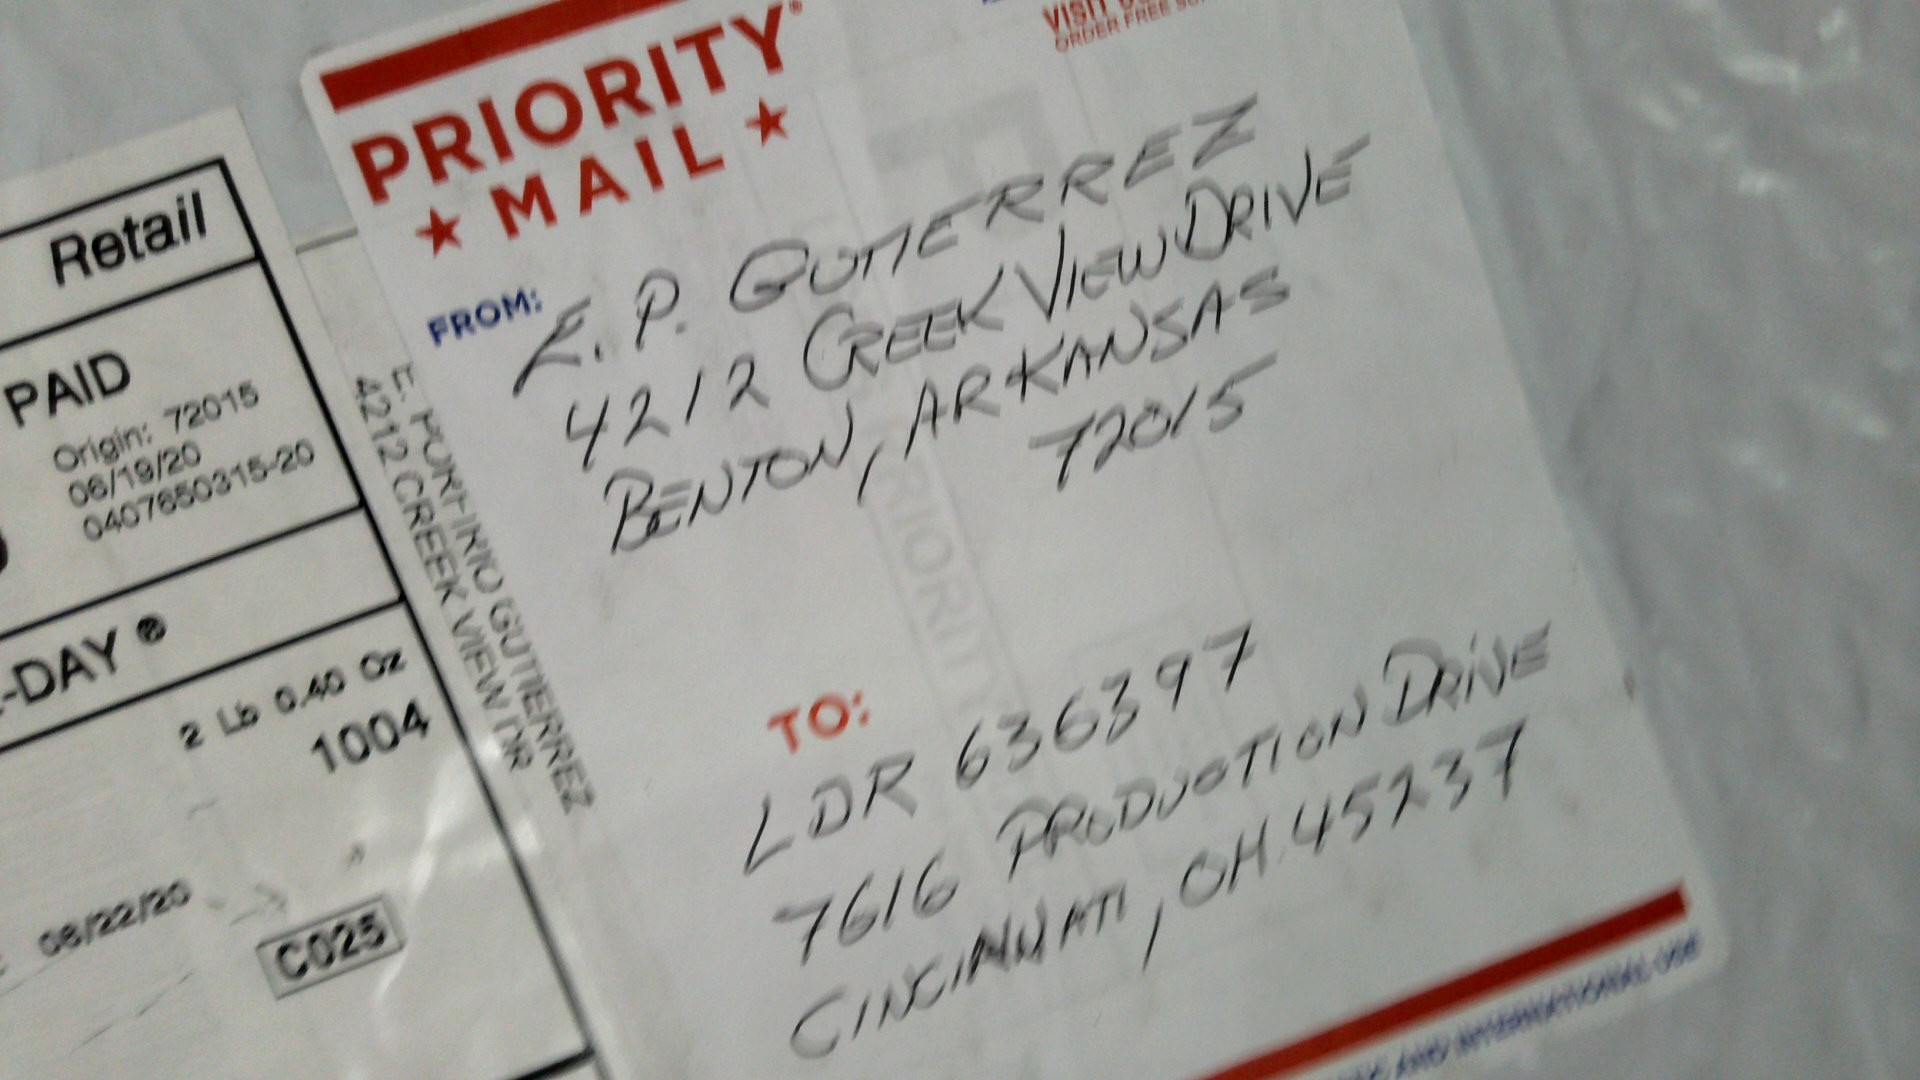 PRIORITY®
★ MAIL ★
ORDER FREE
FROM:
E. P. GUTIERREZ
4212 CREEK VIEW DRIVE
BENTON, ARKANSAS
72015
TO:
LDR 636397
7616 PRODUCTION DRIVE
CINCINNATI, OH 45237
AND INTERNATIONAL USE
E. PORFIRIO GUTIERREZ
4212 CREEK VIEW DR
PRIORITY
Retail
PAID
Origin: 72015
06/19/20
0407650315-20
-DAY ®
2 Lb 0.40 Oz
1004
06/22/20
C025